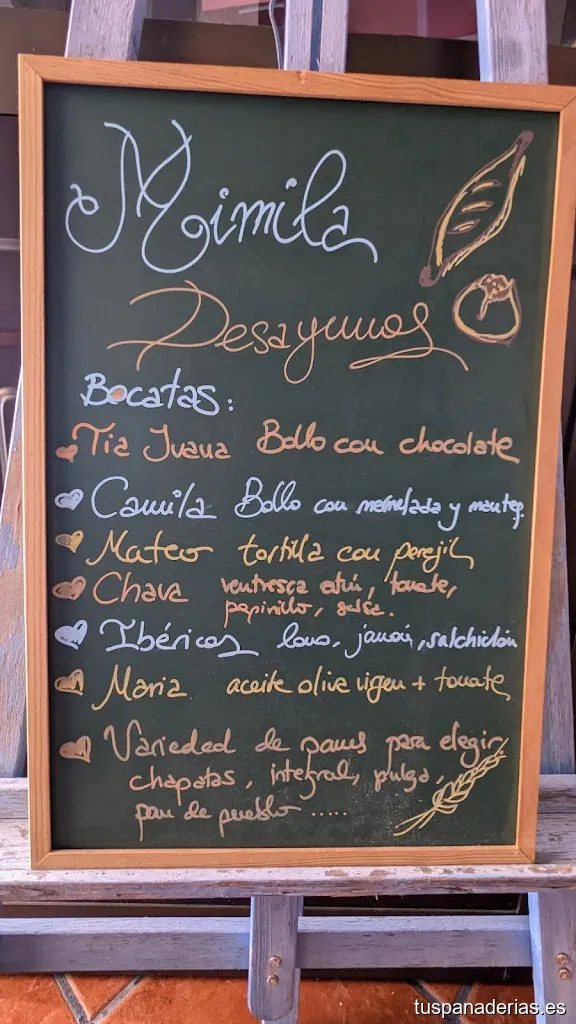 Mimila
Desayunos
Bocatas:
Tia Juana Bollo con chocolate
Camila Bollo con mermelada y manteq.
Mateo tortilla con perejil
Chava ventresca atún, tomate,
pepinillo, salsa.
Ibéricos lomo, jamón, salchichón
Maria aceite oliva virgen + tomate
Variedad de panes para elegir
chapatas, integral, pulga,
pan de pueblo .....
tuspanaderias.es